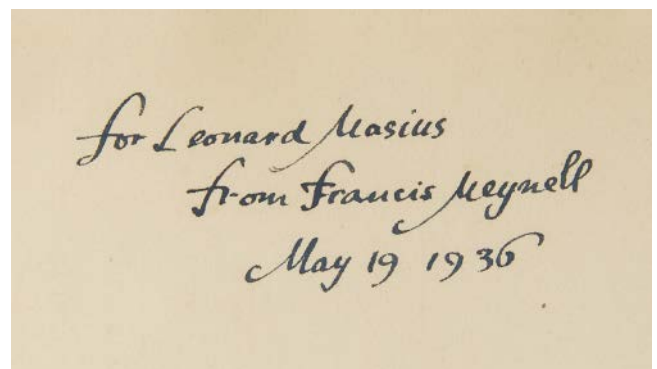 for Leonard Masius
from Francis Meynell
May 19 1936